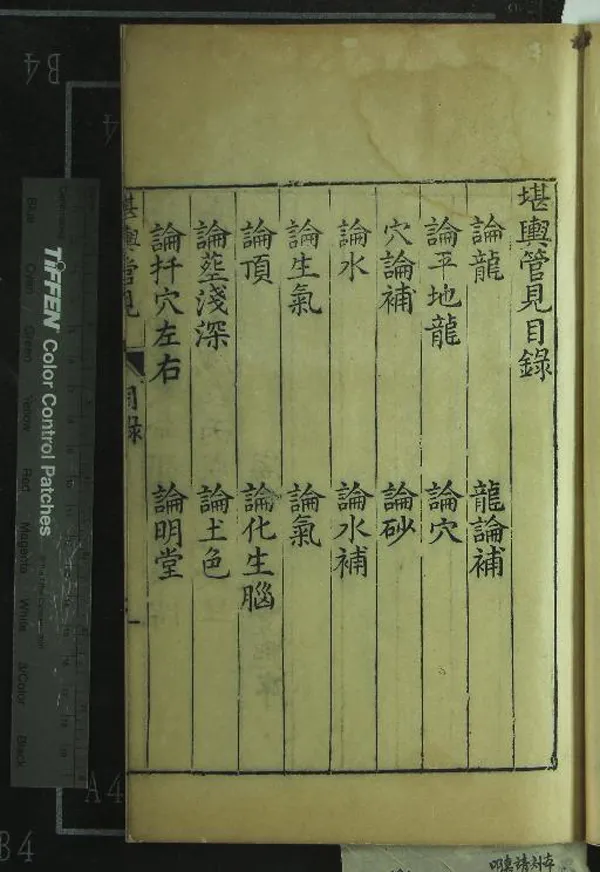 堪輿管見目錄
論龍 龍論補
論平地龍 論穴
穴論補 論砂
論水 論水補
論生氣 論氣
論頂 論化生腦
論塟淺深 論土色
論扦穴左右 論明堂
堪輿管見 目錄 一
TIFFEN Color Control Patches
Blue Cyan Green Yellow Red Magenta White 3/Color Black
B4
4
A4
B4